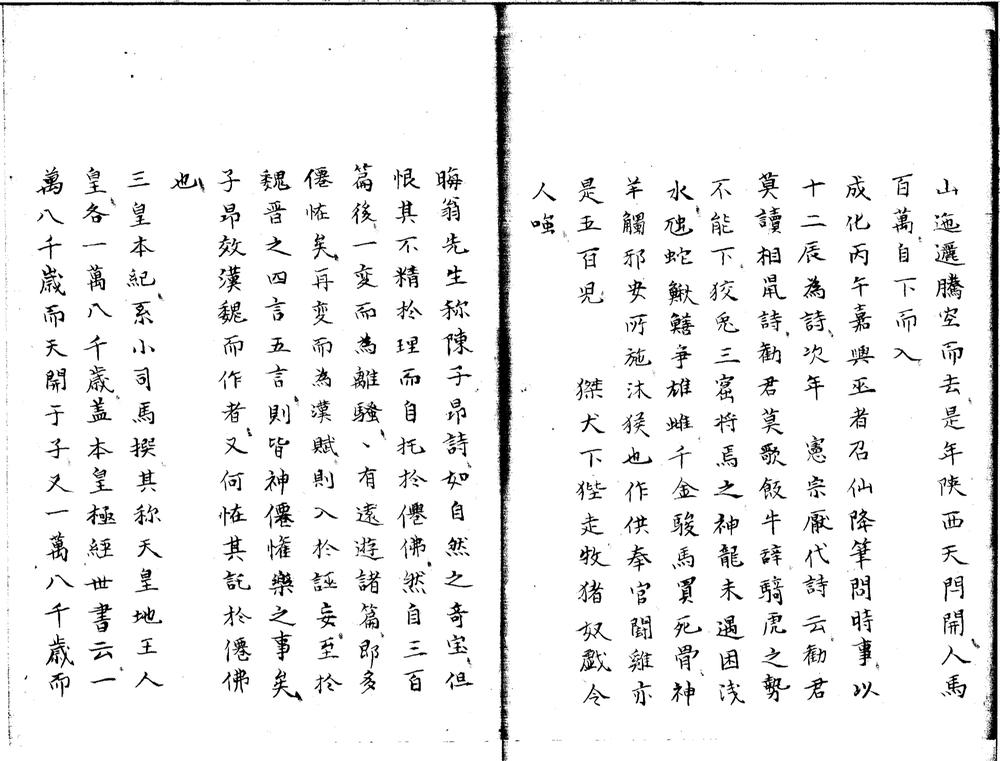 山迤邐騰空而去是年陝西天門開人馬
百萬自下而入
成化丙午嘉興巫者召仙降筆問時事以
十二辰為詩次年　憲宗厭代詩云勸君
莫讀相鼠詩勸君莫歌飯牛辭騎虎之勢
不能下狡兔三窟將焉之神龍未遇困淺
水虺蛇鰍鱔爭雄雌千金駿馬買死骨神
羊觸邪安所施沐猴也作供奉官鬪雞亦
是五百児　桀犬下狴走牧猪奴戲令
人嗤
晦翁先生称陳子昂詩如自然之奇宝但
恨其不精於理而自托於僊佛然自三百
篇後一変而為離騷、有遠遊諸篇即多
僊恠矣再変而為漢賦則入於誣妄至於
魏晋之四言五言則皆神僊懽樂之事矣
子昂效漢魏而作者又何恠其託於僊佛
也
三皇本紀系小司馬撰其称天皇地王人
皇各一萬八千歳盖本皇極經世書云一
萬八千歳而天開于子又一萬八千歳而